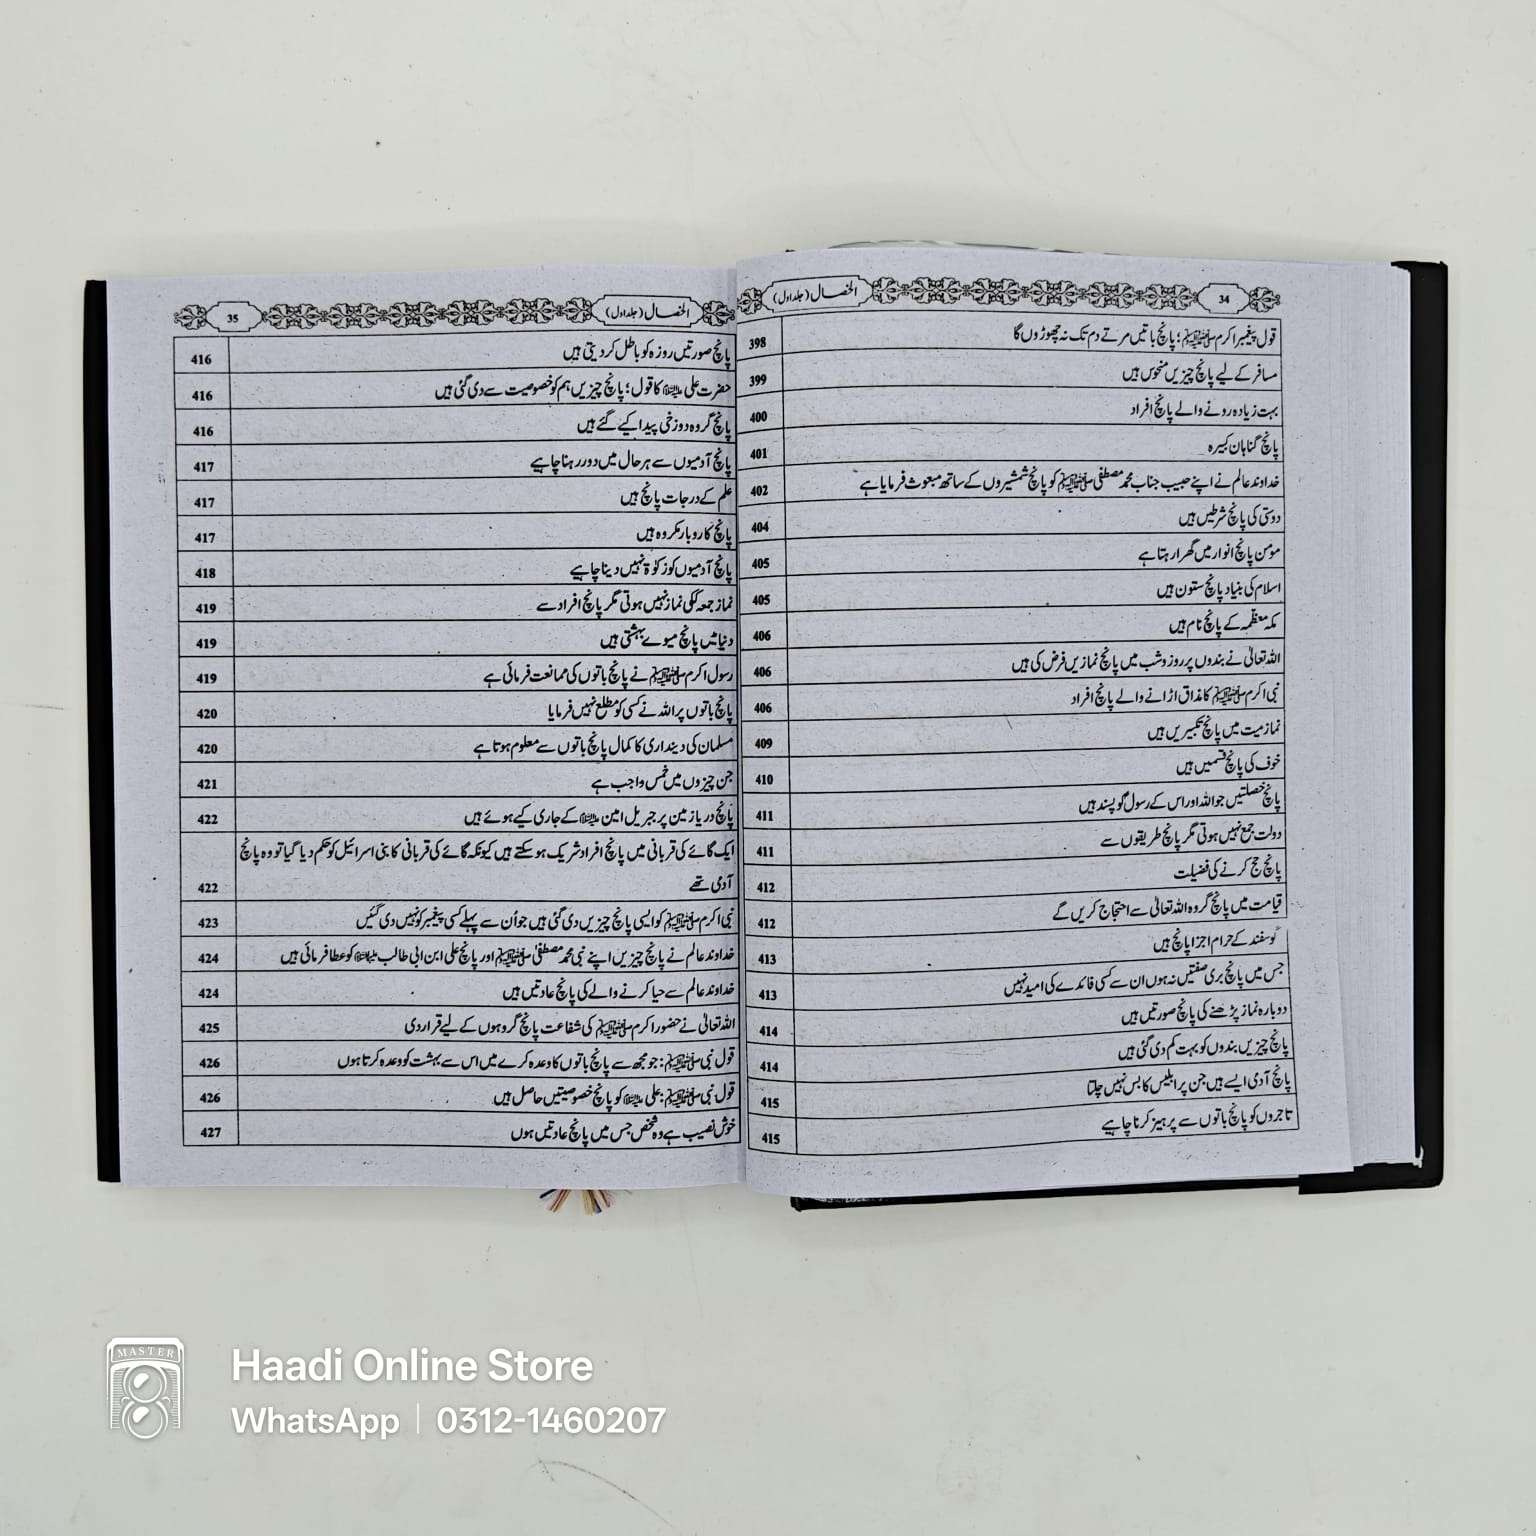 34
الخصال (جلد اول)
قول پیغمبر اکرم ﷺ؛ پانچ باتیں مرتے دم تک نہ چھوڑوں گا 398
مسافر کے لیے پانچ چیزیں منحوس ہیں 399
بہت زیادہ رونے والے پانچ افراد 400
پانچ گناہان کبیرہ 401
خداوند عالم نے اپنے حبیب جناب محمد مصطفی ﷺ کو پانچ شمشیروں کے ساتھ مبعوث فرمایا ہے 402
دوستی کی پانچ شرطیں ہیں 404
مومن پانچ انوار میں گھرا رہتا ہے 405
اسلام کی بنیاد پانچ ستون ہیں 405
مکہ معظّمہ کے پانچ نام ہیں 406
اللہ تعالیٰ نے بندوں پر روز و شب میں پانچ نمازیں فرض کی ہیں 406
نبی اکرم ﷺ کا مذاق اڑانے والے پانچ افراد 406
نماز میت میں پانچ تکبیریں ہیں 409
خوف کی پانچ قسمیں ہیں 410
پانچ خصلتیں جو اللہ اور اس کے رسول کو پسند ہیں 411
دولت جمع نہیں ہوتی مگر پانچ طریقوں سے 411
پانچ حج کرنے کی فضیلت 412
قیامت میں پانچ گروہ اللہ تعالیٰ سے احتجاج کریں گے 412
گوسفند کے حرام اجزا پانچ ہیں 413
جس میں پانچ بری صفتیں نہ ہوں ان سے کسی فائدے کی امید نہیں 413
دوبارہ نماز پڑھنے کی پانچ صورتیں ہیں 414
پانچ چیزیں بندوں کو بہت کم دی گئی ہیں 414
پانچ آدمی ایسے ہیں جن پر ابلیس کا بس نہیں چلتا 415
تاجروں کو پانچ باتوں سے پرہیز کرنا چاہیے 415
الخصال (جلد اول)
35
پانچ صورتیں روزہ کو باطل کر دیتی ہیں 416
حضرت علی علیہ السلام کا قول؛ پانچ چیزیں ہم کو خصوصیت سے دی گئی ہیں 416
پانچ گروہ دوزخی پیدا کیے گئے ہیں 416
پانچ آدمیوں سے ہر حال میں دور رہنا چاہیے 417
علم کے درجات پانچ ہیں 417
پانچ کاروبار مکروہ ہیں 417
پانچ آدمیوں کو زکوٰۃ نہیں دینا چاہیے 418
نماز جمعہ کی نماز نہیں ہوتی مگر پانچ افراد سے 419
دنیا میں پانچ میوے بہشتی ہیں 419
رسول اکرم ﷺ نے پانچ باتوں کی ممانعت فرمائی ہے 419
پانچ باتوں پر اللہ نے کسی کو مطلع نہیں فرمایا 420
مسلمان کی دینداری کا کمال پانچ باتوں سے معلوم ہوتا ہے 420
جن چیزوں میں خمس واجب ہے 421
پانچ دریا زمین پر جبریل امین علیہ السلام کے جاری کیے ہوئے ہیں 422
ایک گائے کی قربانی میں پانچ افراد شریک ہو سکتے ہیں کیونکہ گائے کی قربانی کا بنی اسرائیل کو حکم دیا گیا تو وہ پانچ
آدمی تھے 422
نبی اکرم ﷺ کو ایسی پانچ چیزیں دی گئی ہیں جو اُن سے پہلے کسی پیغمبر کو نہیں دی گئیں 423
خداوند عالم نے پانچ چیزیں اپنے نبی محمد مصطفیٰ ﷺ اور پانچ علی ابن ابی طالب علیہ السلام کو عطا فرمائی ہیں 424
خداوند عالم سے حیا کرنے والے کی پانچ عادتیں ہیں 424
اللہ تعالیٰ نے حضور اکرم ﷺ کی شفاعت پانچ گروہوں کے لیے قرار دی 425
قول نبی ﷺ: جو مجھ سے پانچ باتوں کا وعدہ کرے میں اس سے بہشت کو وعدہ کرتا ہوں 426
قول نبی ﷺ: علی علیہ السلام کو پانچ خصوصیتیں حاصل ہیں 426
خوش نصیب ہے وہ شخص جس میں پانچ عادتیں ہوں 427
MASTER
Haadi Online Store
WhatsApp | 0312-1460207